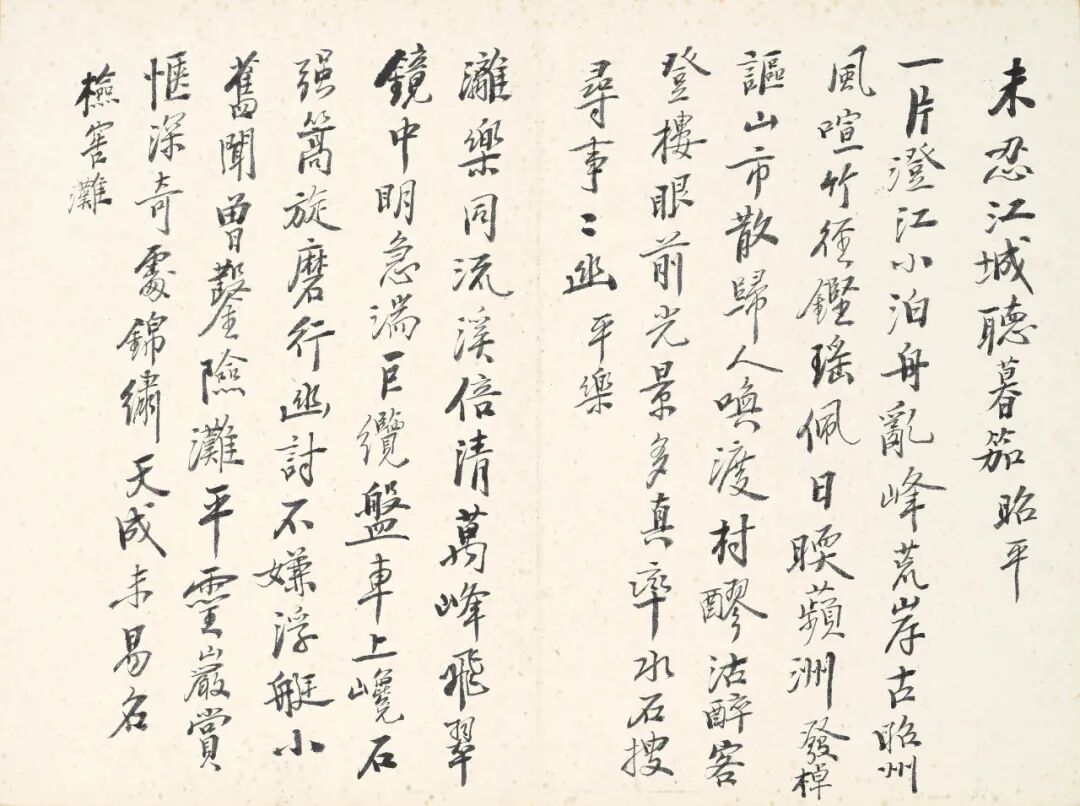 未忍江城聽暮笳 昭平
一片澄江小泊舟亂峰荒岸古昭州
風喧竹徑鏗瑤佩日暝蘋洲發棹
謳山市散歸人喚渡村醪沽醉客
登樓眼前光景多真率水石搜
尋事〻幽 平樂
灕樂同流溪倍清萬峰飛翠
鏡中明急湍巨纜盤車上巉石
强篙旋磨行幽討不嫌浮艇小
舊聞曾鑿險灘平靈巖賞
愜深奇處錦繡天成未易名
灘